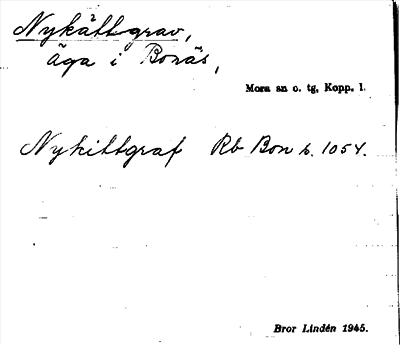 Nykättgrav,
äga i Bonäs,
Mora sn o. tg, Kopp. l.
Nykittgraf Rb Bon h. 1054.
Bror Lindén 1945.